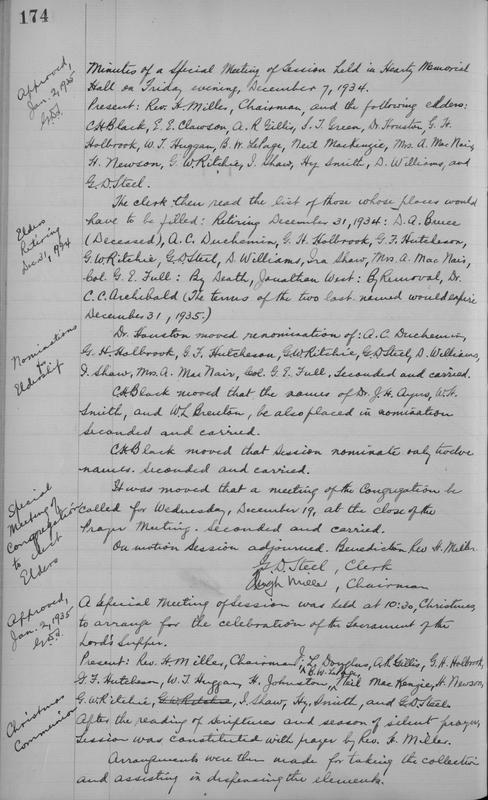 174
Approved,
Jan. 2, 1935
G.D.S.
Minutes of a Special Meeting of Session held in Heartz Memorial
Hall on Friday evening, December 7, 1934.
Present: Rev. H. Miller, Chairman, and the following elders:
C.H. Black, E. E. Clawson, A. R. Gillis, S. T. Green, Dr. Houston, G. H.
Holbrook, W. T. Huggan, B. W. LePage, Neil MacKenzie, Mrs. A. MacNair,
H. Newson, G. W. Ritchie, I. Shaw, Hy Smith, D. Williams, and
G. D. Steel.
Elders
Retiring
Dec. 31, 1934
The clerk then read the list of those whose places would
have to be filled: Retiring December 31, 1934: D. A. Bruce
(Deceased), A. C. Duchemin, G. H. Holbrook, G. F. Hutcheson,
G. W. Ritchie, G. D. Steel, D. Williams, Ira Shaw, Mrs. A. MacNair,
Col. G. E. Full: By Death, Jonathan West: By Removal, Dr.
C. C. Archibald (The terms of the two last named would expire
December 31, 1935.)
Nominations
to
Eldership
Dr. Houston moved renomination of: A. C. Duchemin,
G. H. Holbrook, G. F. Hutcheson, G. W. Ritchie, G. D. Steel, D. Williams,
I. Shaw, Mrs. A. MacNair, Col. G. E. Full. Seconded and carried.
C. H. Black moved that the names of Dr. J. H. Ayers, W. H.
Smith, and W. L. Breuton, be also placed in nomination
Seconded and carried.
C. H. Black moved that Session nominate only twelve
names. Seconded and carried.
Special
Meeting of
Congregation
to elect
Elders
It was moved that a meeting of the Congregation be
called for Wednesday, December 19, at the close of the
Prayer Meeting. Seconded and carried.
On motion Session adjourned. Benediction Rev. H. Miller
G. D. Steel, Clerk
Hugh Miller, Chairman
Approved,
Jan. 2, 1935
G.D.S.
A Special Meeting of Session was held at 10:30, Christmas,
to arrange for the celebration of the Sacrament of the
Lord's Supper.
Present: Rev. H. Miller, Chairman, J. L. Douglas, A. R. Gillis, G. H. Holbrook,
G. F. Hutcheson, W. T. Huggan, H. Johnston, B. W. LePage, Neil MacKenzie, H. Newson,
G. W. Ritchie, G. W. Ritchie, I. Shaw, Hy. Smith, and G. D. Steel.
Christmas
Communion
After the reading of Scriptures and season of silent prayer,
Session was constituted with prayer by Rev. H. Miller.
Arrangements were then made for taking the collection
and assisting in dispensing the elements.